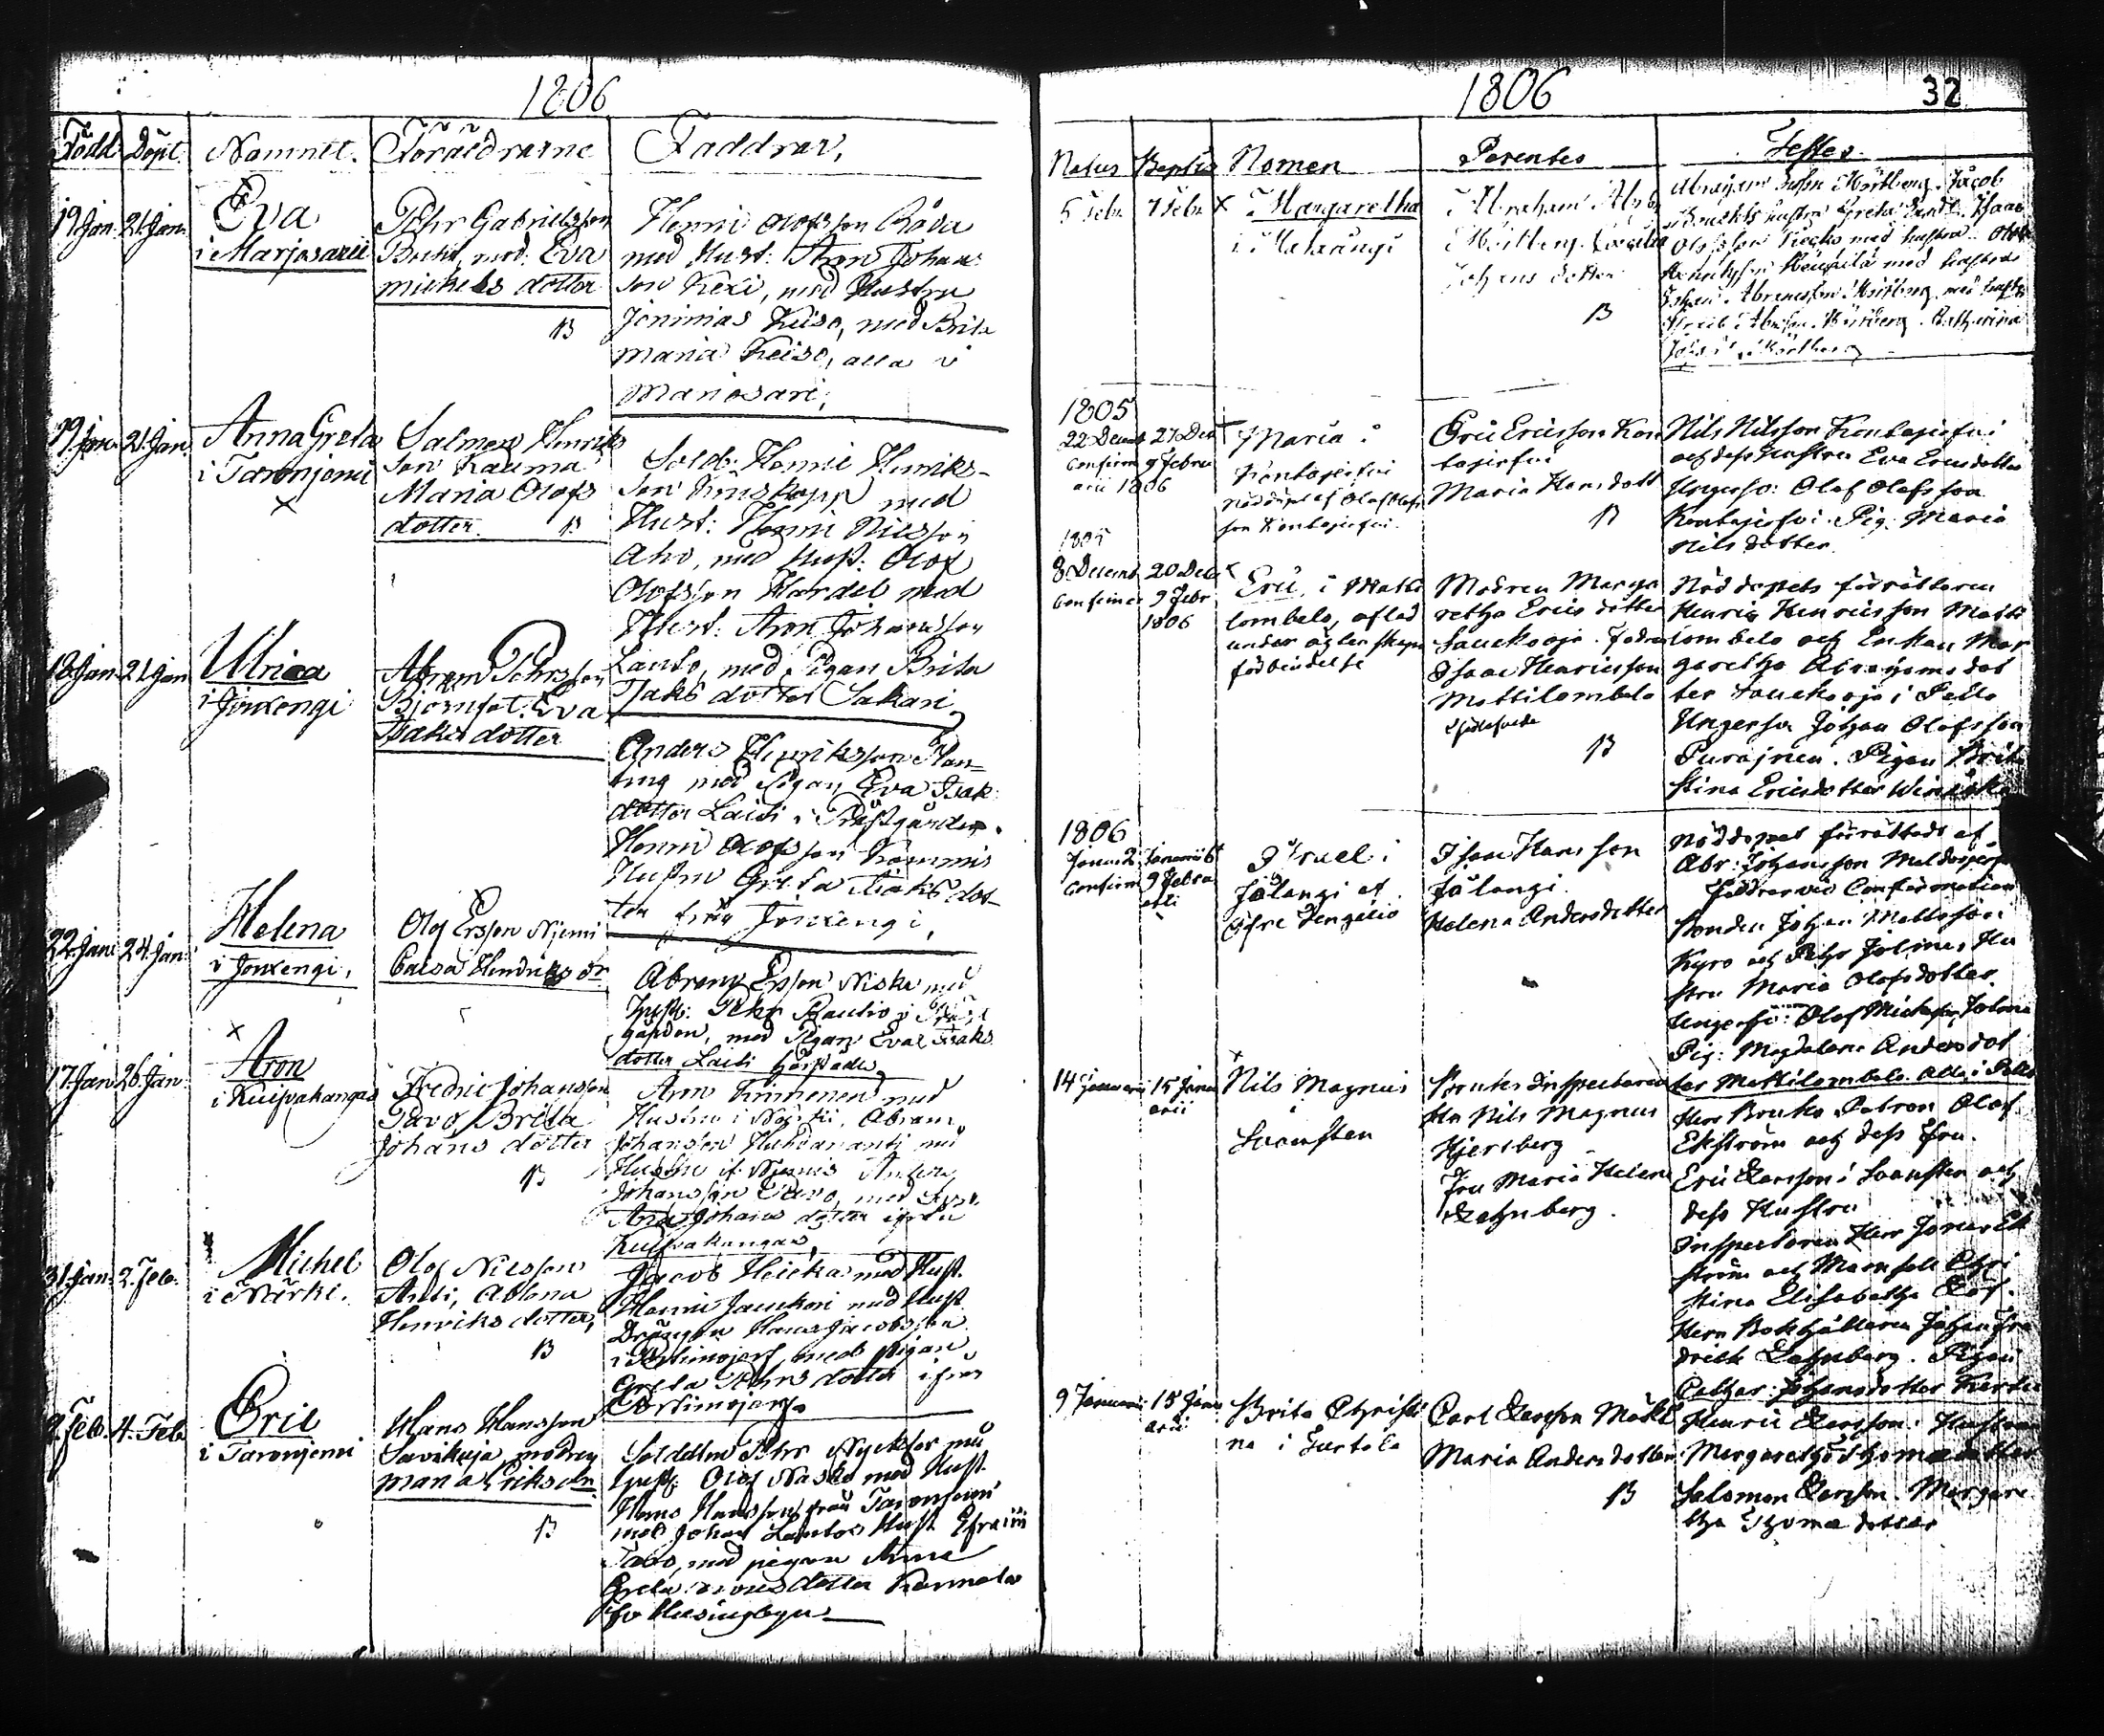 1806
Född Döpt. Namnet. Föräldrarne Faddrar.
19 Jan. 21 Jan. Eva
i Marjosarii
Pehr Gabrielsson
Bucht, mod: Eva
mickels dotter
B
Henric Olofsson Röda
med Hust: Aron Johans
son Kexi, med Hustru
Keiso, med Brita
Maria Keiso, alla i
Mariosari,
19 Jan. 21 Jan. Anna Greta
i Taronjemi
X
Salmon Henriks
son Kauma
Maria Olofs
dotter. B
Sold: Henric Henriks-
son med
Hust: Henric Nilsson
Aho, med Hust: Olof
Olofsson Hardel med
Hust: Aron Johansson
Lanto, med Pigan Brita
Isaks dotter Sakari,
18 Jan. 21 Jan. Ulrica
i Jouxengi
Abram Pehrsson
Björnfot. Eva
Isaks dotter
Anders Henriksson Plan=
ting med Pigan Eva Isak
dotter Laiti i Prästgården.
Henric Olofsson
Hustru Greta Isaks dot-
ter från Jouxengi,
22 Jan. 24 Jan. Helena
i Jouxengi,
Olof Ersson Njemi
Caisa Hendriks dr
Abram Ersson Niska med
Hust: Pehr Rautio i Präst
gården, med Pigan Eva Isaks
dotter Laiti härstädes
X
17 Jan. 26 Jan. Aron
i Kuivakangas
Fredric Johansson
Pavo, Brita
Johans dotter
B
Aron Kinnenen med
Hustru i Närki, Abram
Johansson med
Hustru
Johansson Pavo, med
Johans dotter ifrån
Kuivakangas,
31 Jan. 2. Feb. Michel
i Närki.
Olof Nilsson
Antti, Ablona
Henriks dotter,
B
Jacob Heicka med Hust.
Henric Jauckuri med Hust
Drängen Hans Jacobsson
i Portimojerf, med pigan
Greta Pehrs dotter ifrån
Portimojerf
2. Feb. 4. Feb. Eric
i Taronjemi
Hans Hansson
Savikuja, modren
Maria Eriks dr.
B
Soldaten Pehr
Hust: Olof Nasko med Hust
Hans Hansson från Taronjemi
med Johan Lantos Hust Efraim
Pavo, med pigan Anna
Greta dotter
ifr Helsingbyn

1806 32
Natus Baptis Nomen Parentes Testes
5 Febr. 7 Febr. X Margaretha
i Matarängi
Abraham Abr
Mörtberg. Cecilia
Johans dotter
B
Abraham Mörtberg. Jacob
hustru Greta Isaac
Olofsson med hustru Olof
med hustru
Johan Abramsson Mörtberg med hustr
Mörtberg. Catharina
Mörtberg
1805
22 Decemb 27 Dec
Confirm 9 Febru
arii 1806
Maria i
Kontojerfvi
nöddöpt af Olof Olofs
son Kontojerfvi
Eric Ericsson Kon
tojerfvi
Maria Hansdott
B
Nils Nilsson Kontojerfvi
och dess Hustru Eva Ericsdotter
Ungerso: Olof Olofsson
Kontojerfvi. Pig: Maria
Nils dotter
1805
8 Decemb 20 Dec
Confirmer 9 Febr
1806
Eric i Matti
lombolo, aflad
under äglenskaps
förbindelse
Modren Marga
retha Erics dotter
Sauckooja. Fadren
Isaac Henricsson
Mattilombolo
B
Nöddopets förrättaren
Henric Henricsson Matti
lombolo och Enkan Mar
garetha Abrahams dot
ter Sauckooja i Pello
Ungerson Johan Olofsson
Purajnen. Pigan Brita
Stina Ericsdotter
1806
Januar 2 Januarii 6
Confirm 9 Febru
arii
Israel i
Jolangi af
Öfre Kengesis
Isaac Hansson
Jolangi
Helena Andersdotter
Nöddopet förrättadt af
Abr: Johansson
Faddrar wid Confirmation
Bonden Johan Mattsson
Kyro och Pehr Jolmas Hu
stru Maria Olofsdotter.
Ungersv: Olof Michelss: Jolma
Pig: Magdalena Andersdot
ter Mattilombolo. Alla i Pello
14 Januarii 15 Janu
arii
Nils Magnus
i
Svansten
Bruks Inspectoren
Hr Nils Magnus
Hjertberg
Fru Maria Helena
Lehnberg.
Herr Bruks Patron Olof
Ekström och dess Fru.
Eric Larsson i Svansten och
dess Hustru
Inspectoren Herr Jonas Ek
ström och Mamsell Chri
stina Elisabetha Löf.
Herr Bokhållaren Johan Fre
drick Lehnberg. Pigan
Cathar: Johansdotter
9 Januarii 15 Janu
arii
Brita Christi
na i Turtola
Carl Larsson
Maria Andersdotter
B
Henric Larsson. Hustrun
Margaretha Thomædotter
Salomon Larsson. Margare
tha Thomædotter